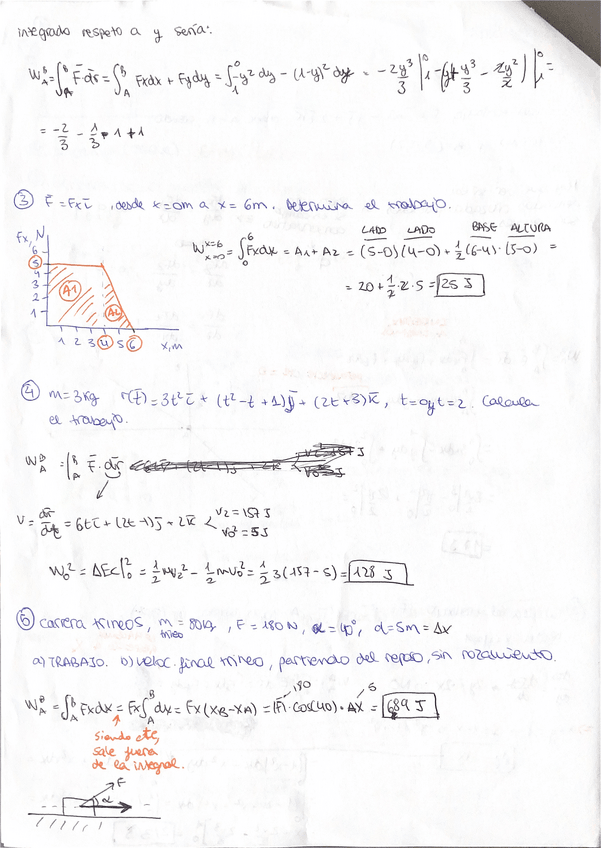 integrado respeto a y sería:
W_A^B = ∫_A^B F̄·dr̄ = ∫_A^B Fxdx + Fydy = ∫_1^0 -y² dy - (1-y)² dy = -2y³/3 |_1^0 - (y + y³/3 - 2y²/2) |_1^0 =
= -2/3 - 1/3 - 1 + 1
③ F̄ = Fx ī , desde x = 0m a x = 6m. Determina el trabajo.
Fx, N
6
5
4
3
2
1
A1
A2
1 2 3 4 5 6 x, m
LADO LADO BASE ALTURA
W_{x=0}^{x=6} = ∫_0^6 Fxdx = A1 + A2 = (5-0)(4-0) + 1/2 (6-4)·(5-0) =
= 20 + 1/2 · 2 · 5 = 25 J
④ m = 3kg r(t̄) = 3t² ī + (t² - t + 1) j̄ + (2t + 3) k̄ , t = 0 y t = 2. Calcula
el trabajo.
W_A^B = ∫_A^B F̄·dr̄
V = dr̄/dt = 6t ī + (2t - 1) j̄ + 2k̄ < V2 = 157 J
V0² = 5 J
W_0² = ΔEc|_0² = 1/2 mV2² - 1/2 mV0² = 1/2 3 (157 - 5) = 128 J
⑤ Carrera trineos, m = 80kg , F = 180 N, α = 40°, d = 5m = Δx
trineo
a) TRABAJO. b) veloc. final trineo, partiendo del reposo, sin rozamiento.
W_A^B = ∫_A^B Fxdx = Fx ∫_A^B dx = Fx (XB - XA) = |F| · cos(40) · Δx = 689 J
180
5
Siendo cte,
sale fuera
de la integral.
F
α